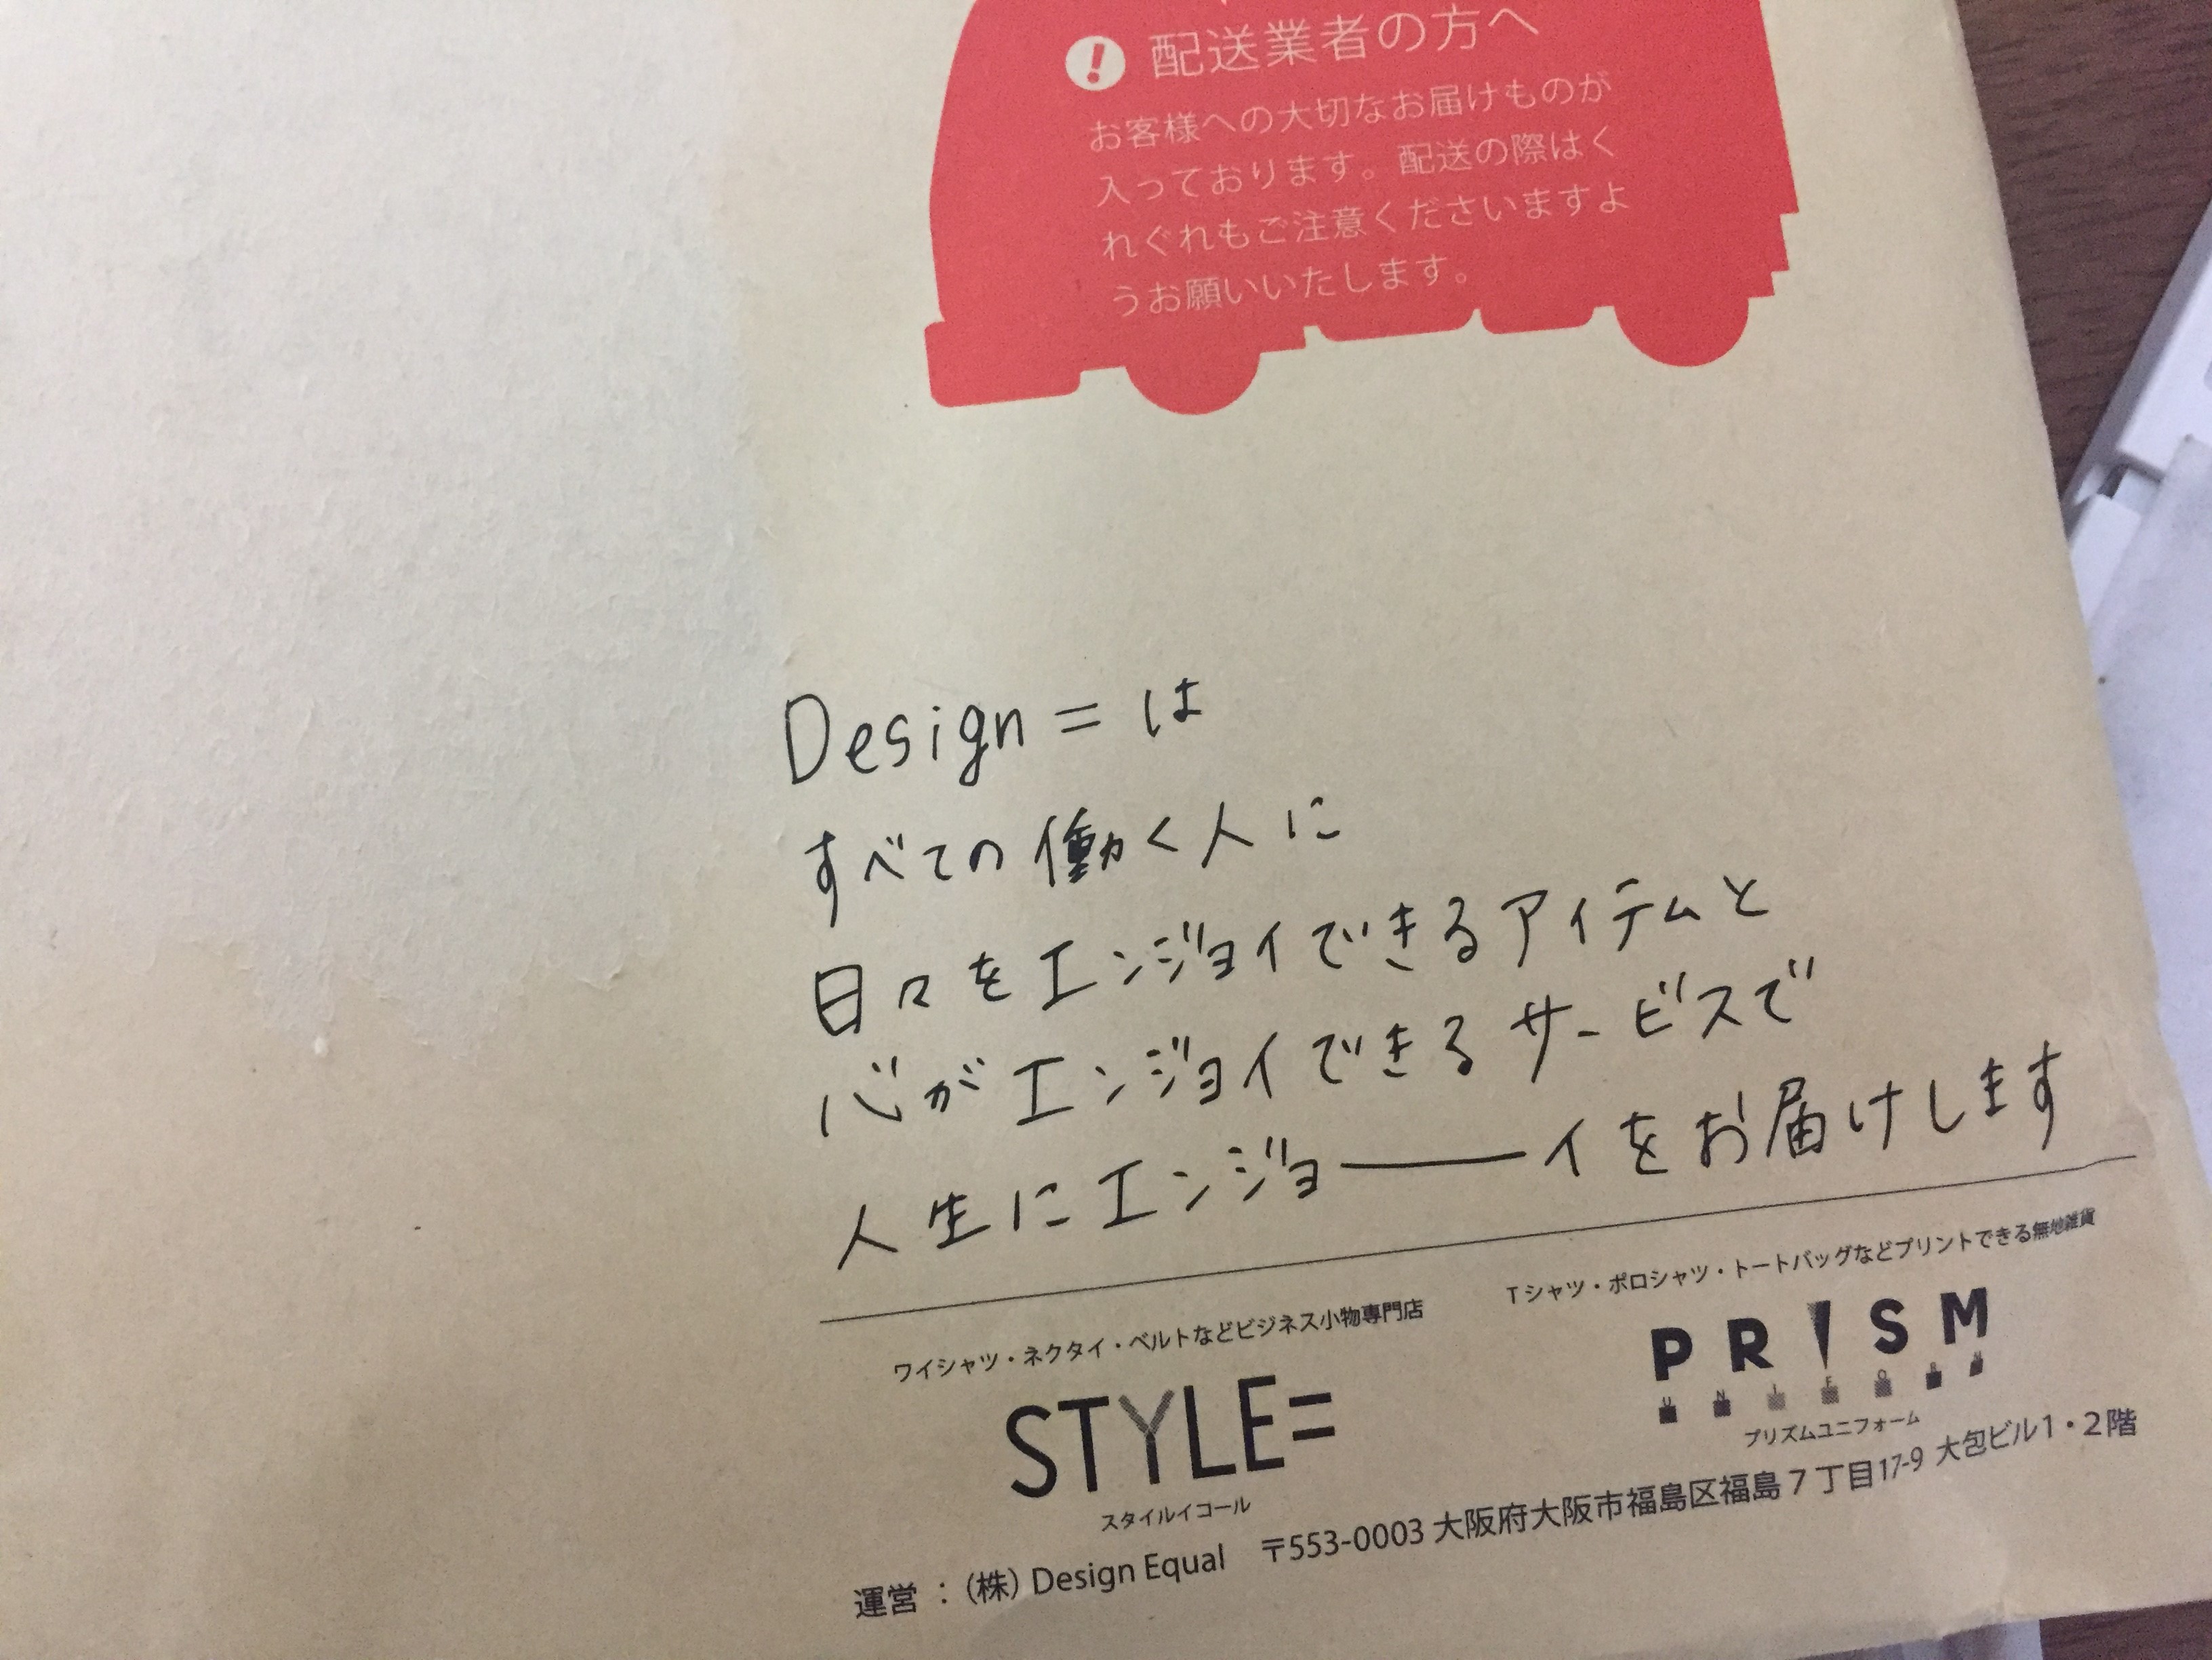 ! 配送業者の方へ
お客様への大切なお届けものが
入っております。配送の際はく
れぐれもご注意くださいますよ
うお願いいたします。
Design = は
すべての働く人に
日々をエンジョイできるアイテムと
心がエンジョイできるサービスで
人生にエンジョーイをお届けします
ワイシャツ・ネクタイ・ベルトなどビジネス小物専門店
STYLE=
スタイルイコール
Tシャツ・ポロシャツ・トートバッグなどプリントできる無地雑貨
PRISM
UNIFORM
プリズムユニフォーム
運営：(株) Design Equal 〒553-0003 大阪府大阪市福島区福島7丁目17-9 大包ビル1・2階